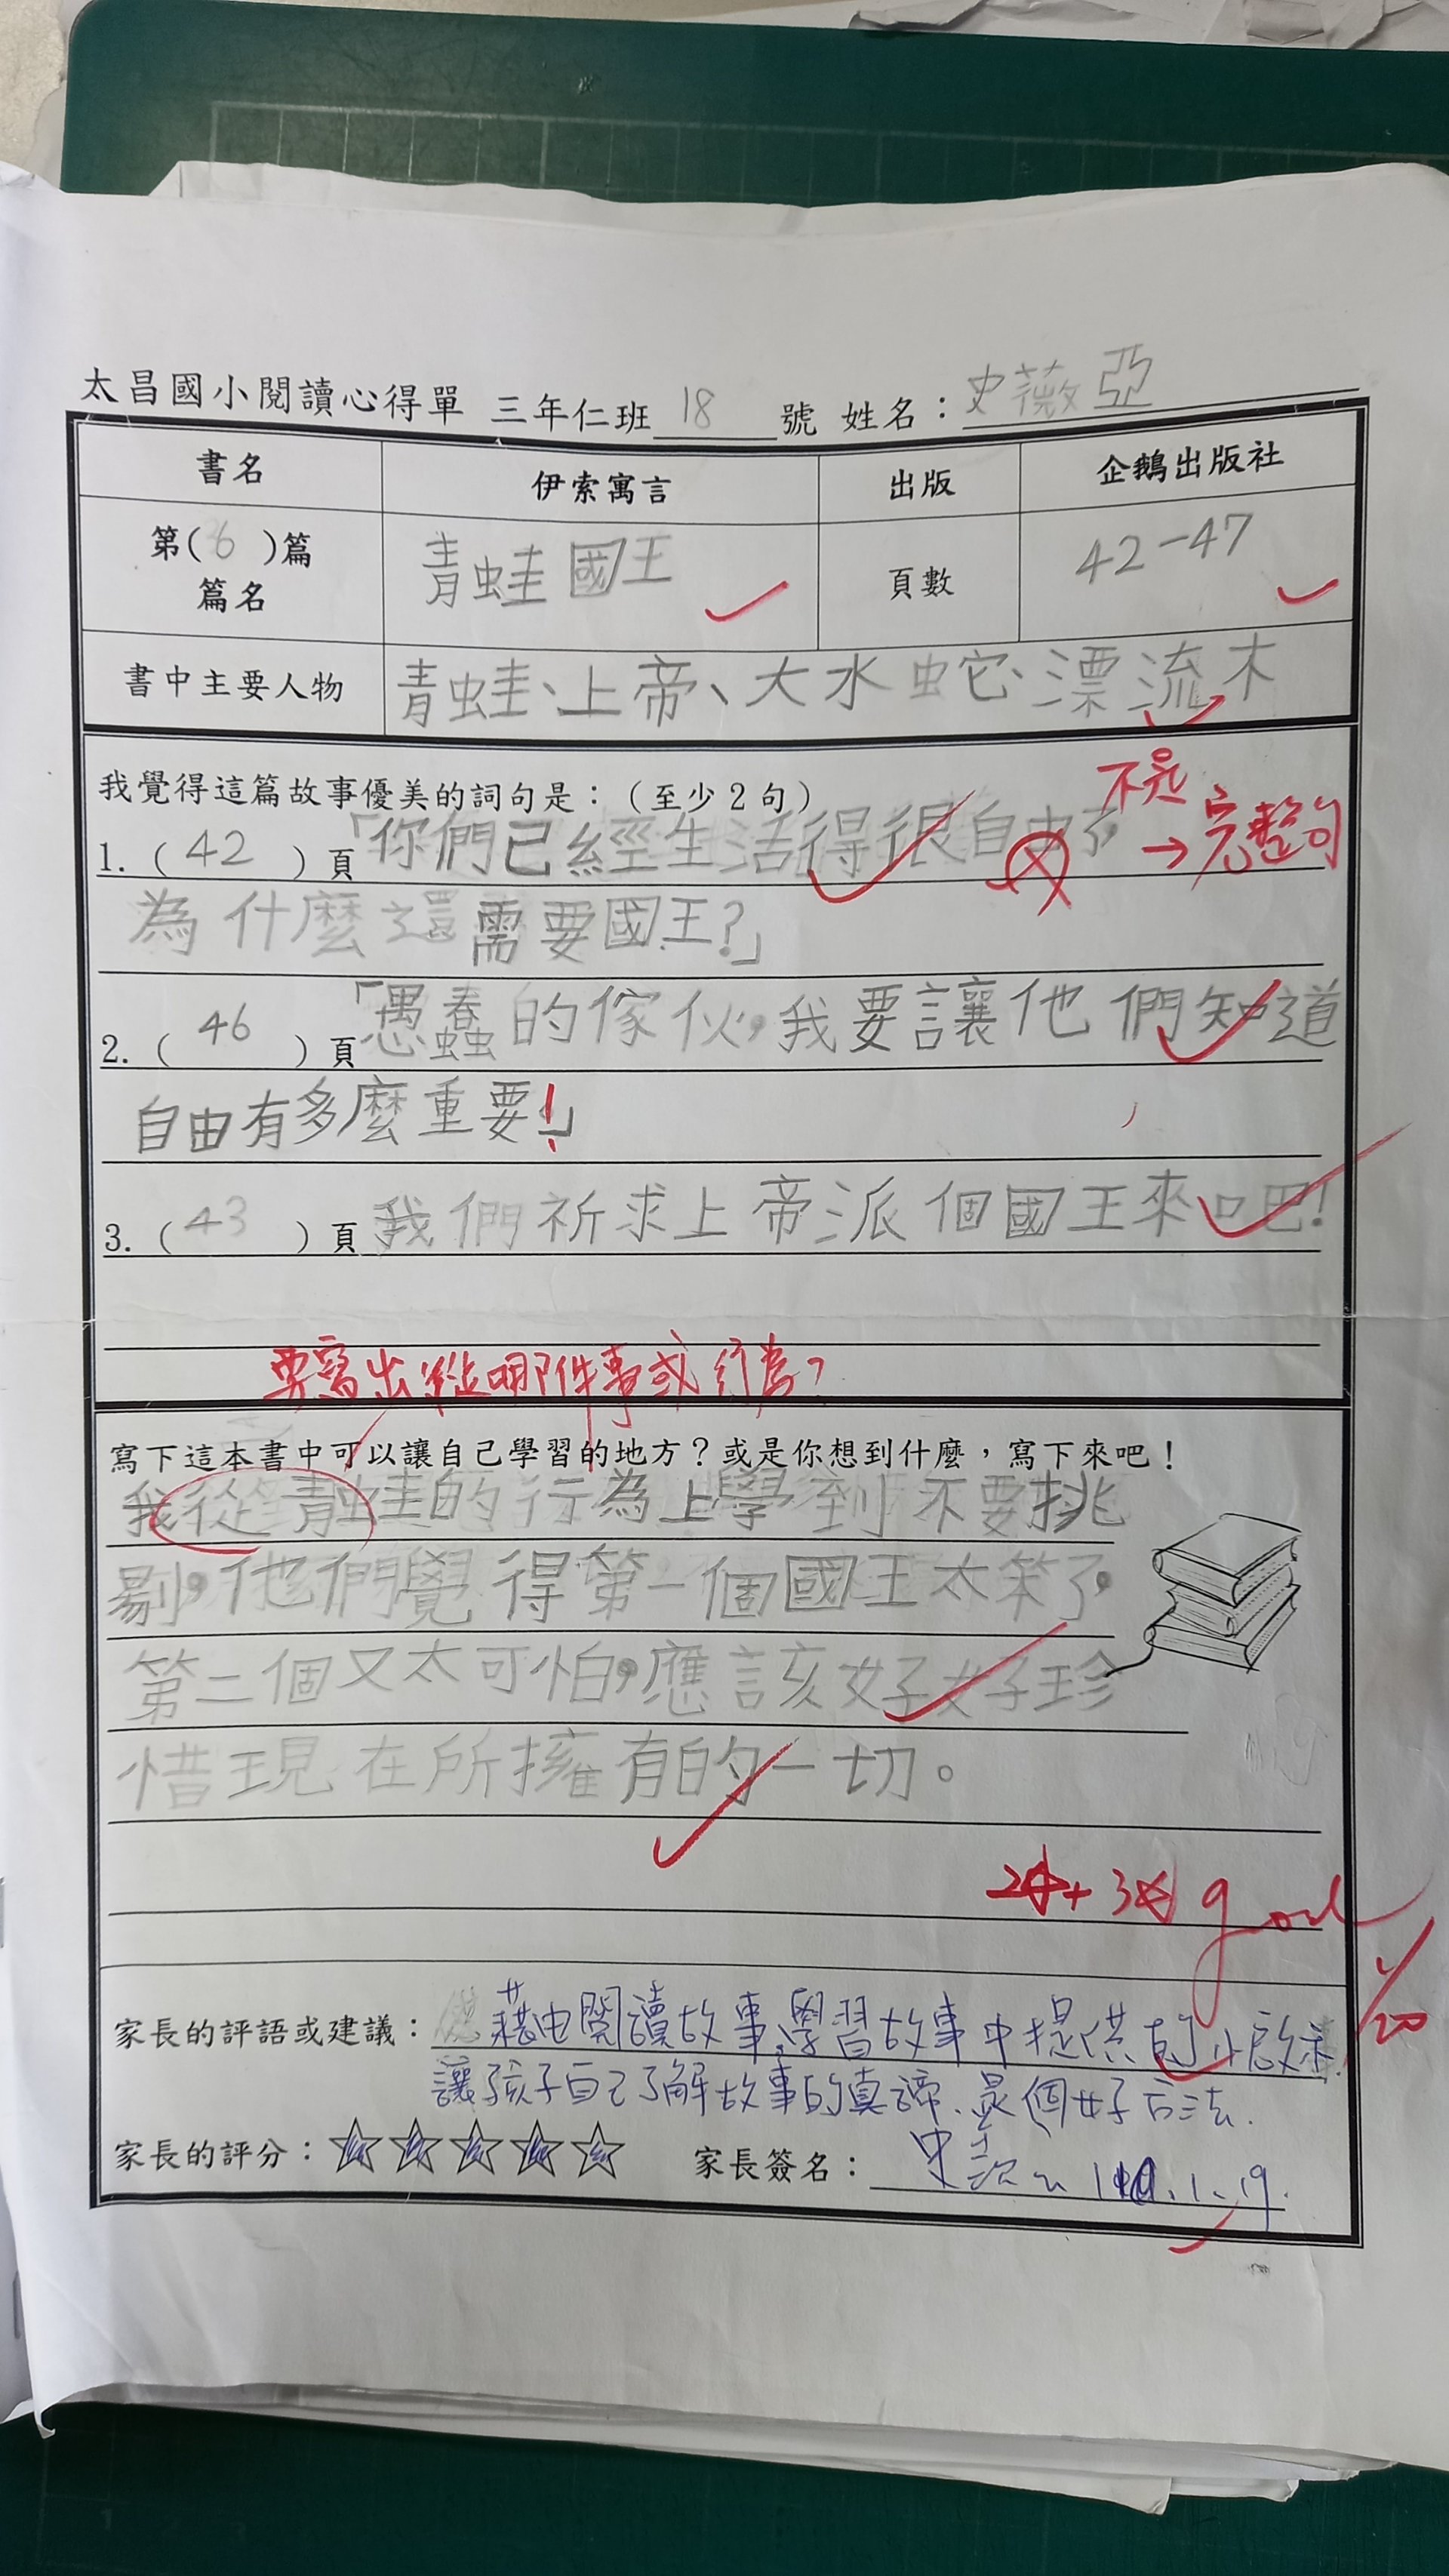 太昌國小閱讀心得單 三年仁班 18 號 姓名：史薇亞
書名 伊索寓言 出版 企鵝出版社
第(6)篇 篇名 青蛙國王 頁數 42-47
書中主要人物 青蛙、上帝、大水蛇、漂流木
我覺得這篇故事優美的詞句是：（至少2句）
不是
→完整句
1.（42）頁「你們已經生活得很自由了，
為什麼還需要國王?」
2.（46）頁「愚蠢的傢伙，我要讓他們知道
自由有多麼重要!」
3.（43）頁 我們祈求上帝派個國王來吧!
要寫出從哪件事或行為?
寫下這本書中可以讓自己學習的地方？或是你想到什麼，寫下來吧！
我從青蛙的行為上學到不要挑
剔，他們覺得第一個國王太笨了，
第二個又太可怕，應該好好珍
惜現在所擁有的一切。
good
1/20
家長的評語或建議：藉由閱讀故事，學習故事中提供的小啟示，
讓孩子自己了解故事的真諦、是個好方法.
家長的評分：☆☆☆☆☆ 家長簽名：史 1.19.